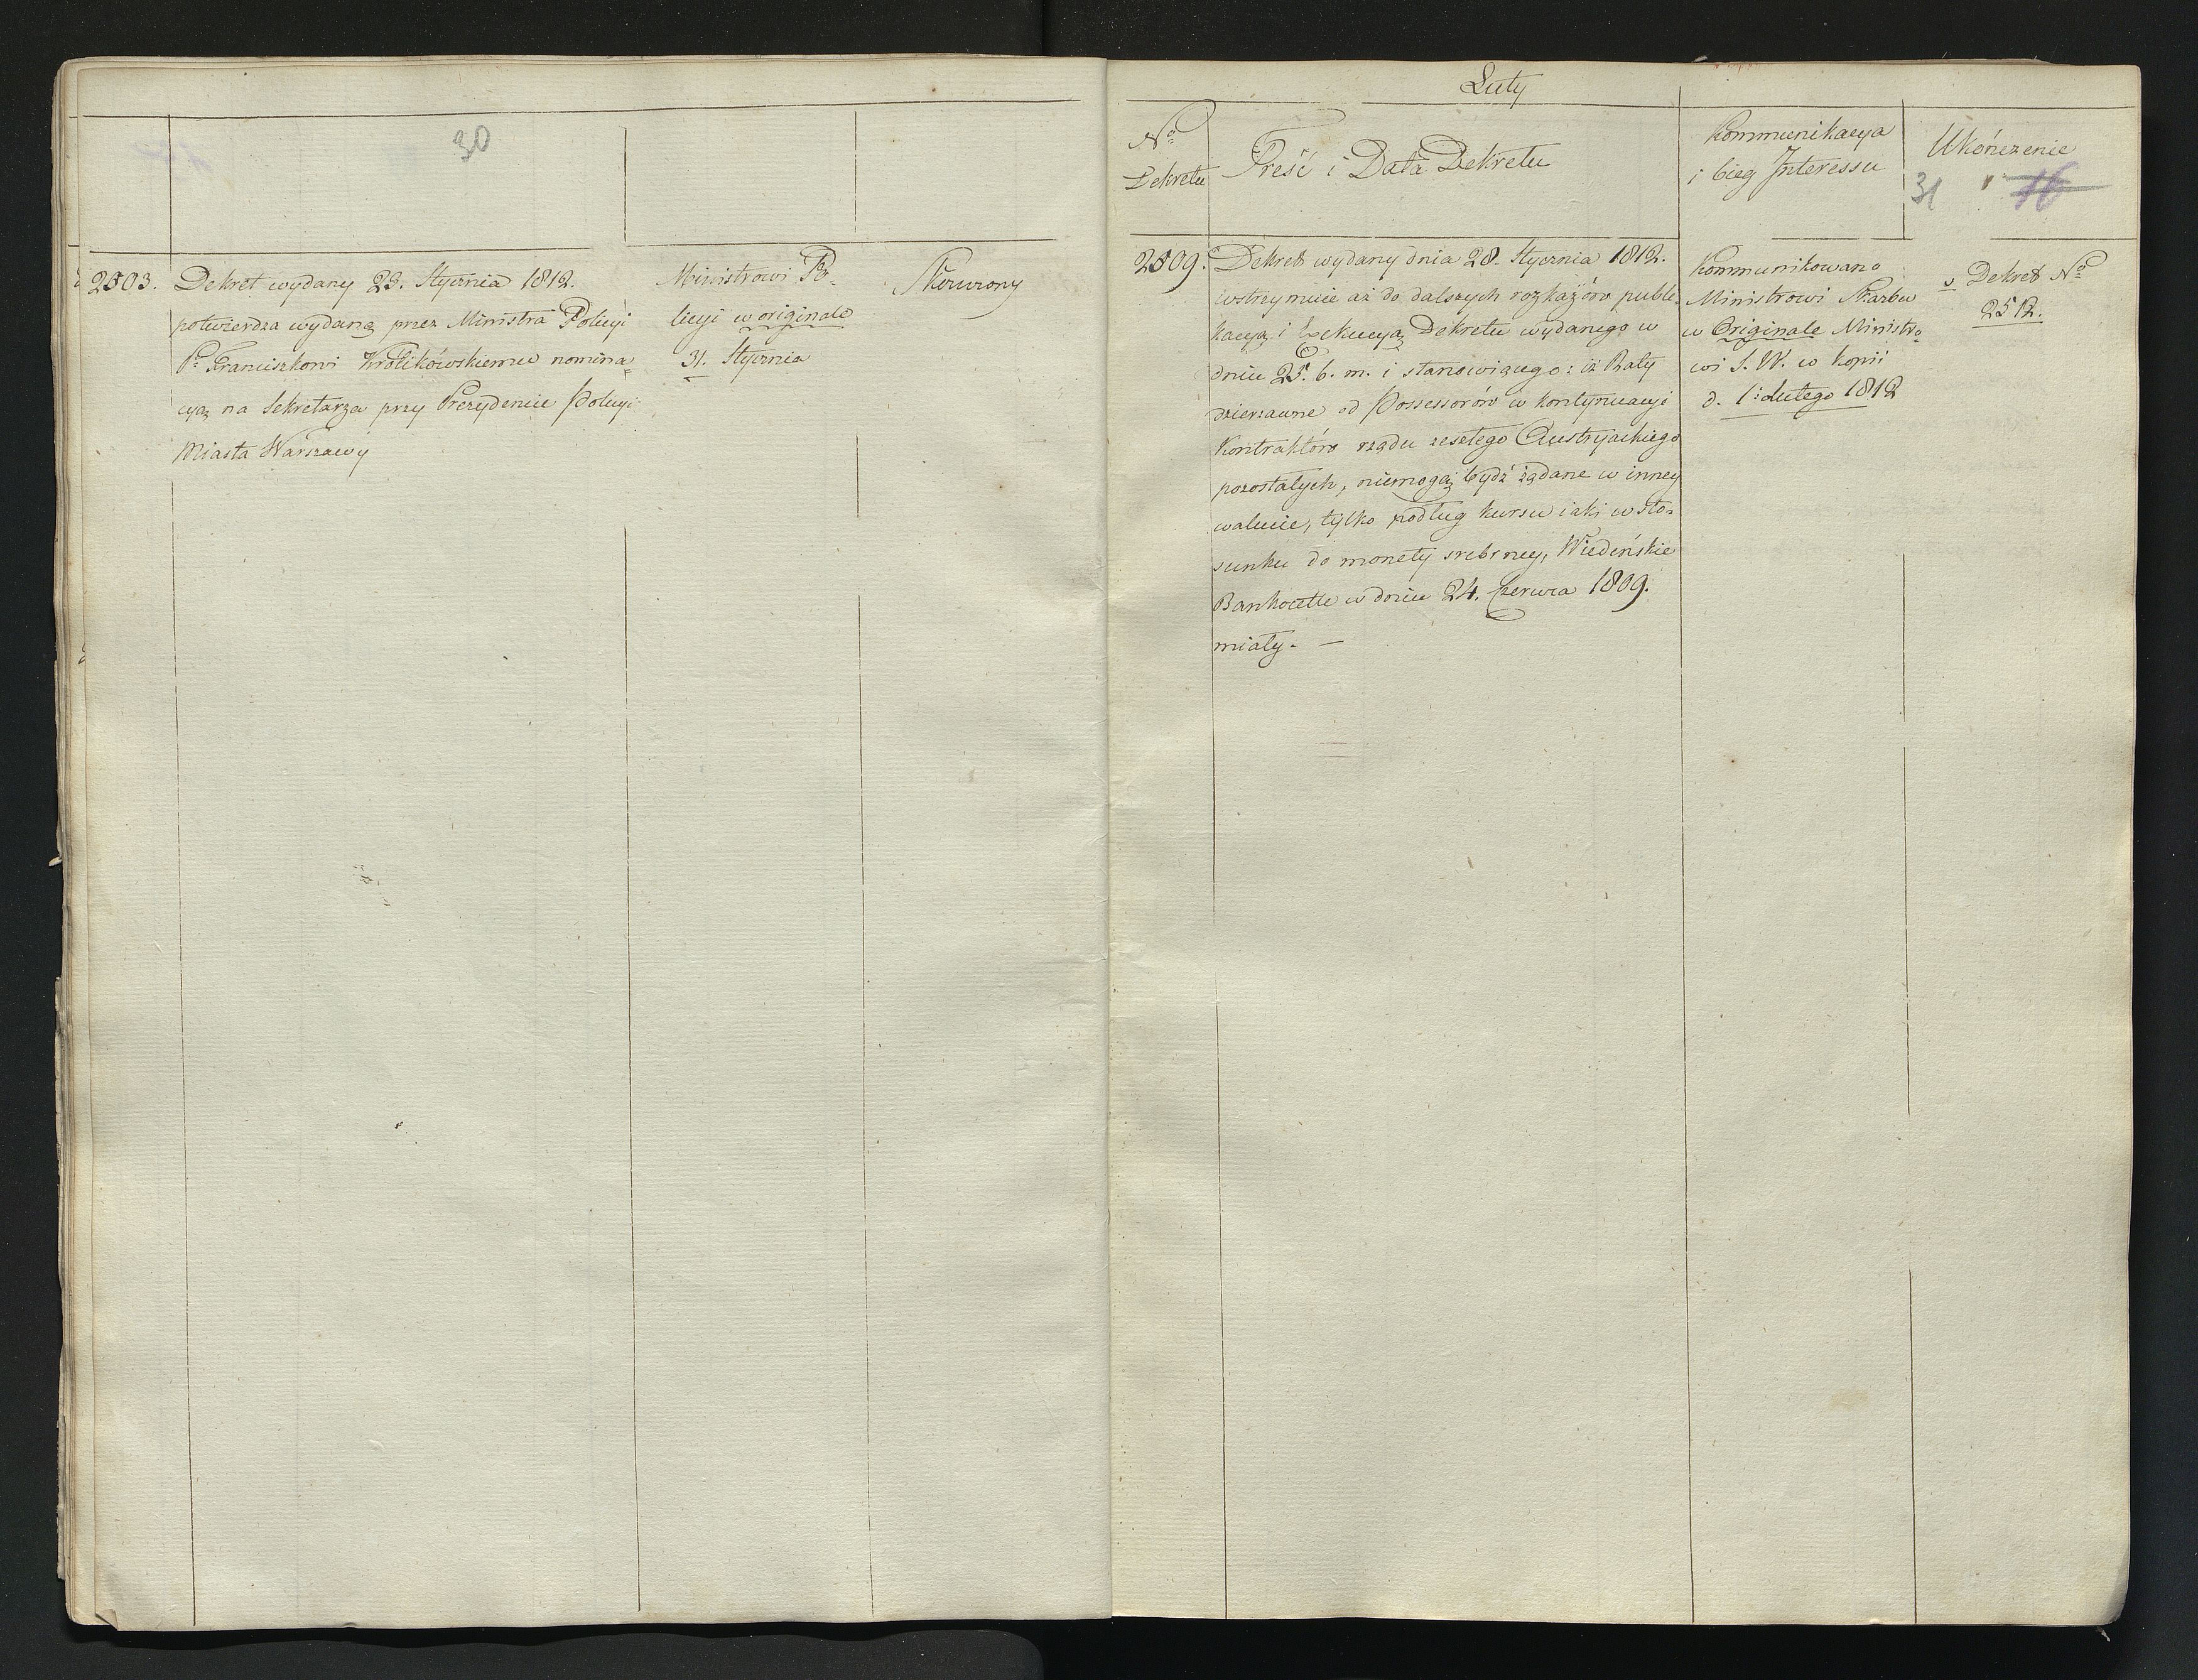 30
2503.
Dekret wydany 23. Stycznia 1812.
potwierdza wydaną przez Ministra Policyi
Pu Franciszkowi Krolikówskiemu nomina=
cyą na Sekretarza przy Prezydencie Policyi
Miasta Warszawy
Ministrowi Po=
licyi w originale
31. Stycznia
Skończony
Luty
No
Dekretu
Treść i Data Dekretu
Kommunikacya
i bieg Interessu
Ukończenie
31 16
2509.
Dekret wydany dnia 28. Stycznia 1812.
wstrzymuie aż do dalszych rozkazów publi-
kacyą i Exekucyą Dekretu wydanego w
dniu 25. b. m. i stanowiącego: iż Raty
dzierzawne od Possessorów w kontynuacyi
Kontraktów rządu zeszłego Austryackiego
pozostałych, niemogą bydź żądane w inney
walucie, tylko podług kursu iaki w sto=
sunku do monety srebrney, Wiedeńskie
Bankocetle w dniu 24. Czerwca 1809.
miały. —
Kommunikowano
Ministrowi Skarbu
w Originale Ministro=
wi S. W. w kopii
d. 1: Lutego 1812
v Dekret No
2512.